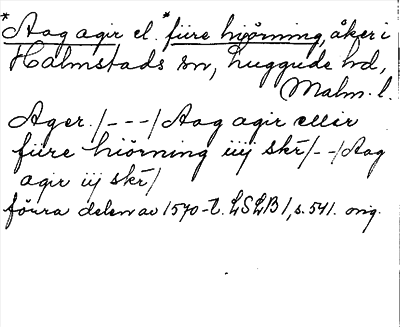 *Aag agir el. *fiire hiörning, åker i
Halmstads sn, Luggude hd,
Malm. l.
Ager. /---/ Aag agir eller
fiire hiörning iiij skr̄ /--/ Aag
agir iij skr̄ /
förra delen av 1570-t. LSLB 1, s. 541. orig.